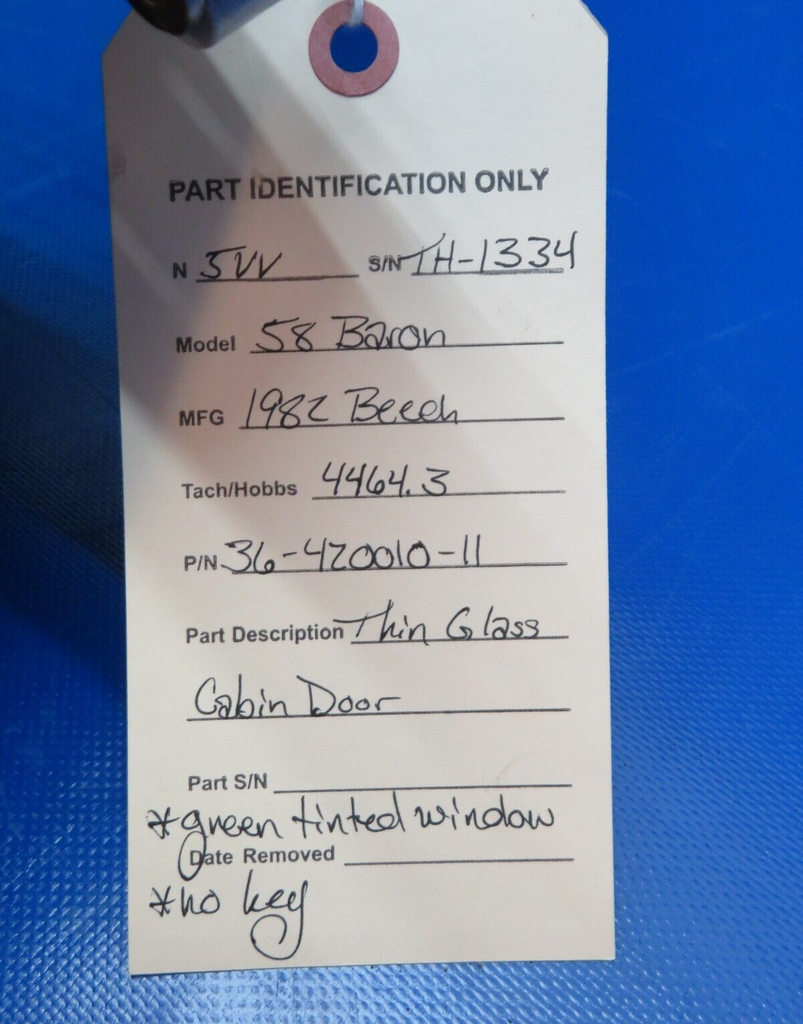 PART IDENTIFICATION ONLY
N 5VV S/N TH-1334
Model 58 Baron
MFG 1982 Beech
Tach/Hobbs 4464.3
P/N 36-420010-11
Part Description Thin Glass
Cabin Door
Part S/N
*green tinted window
Date Removed
*no key